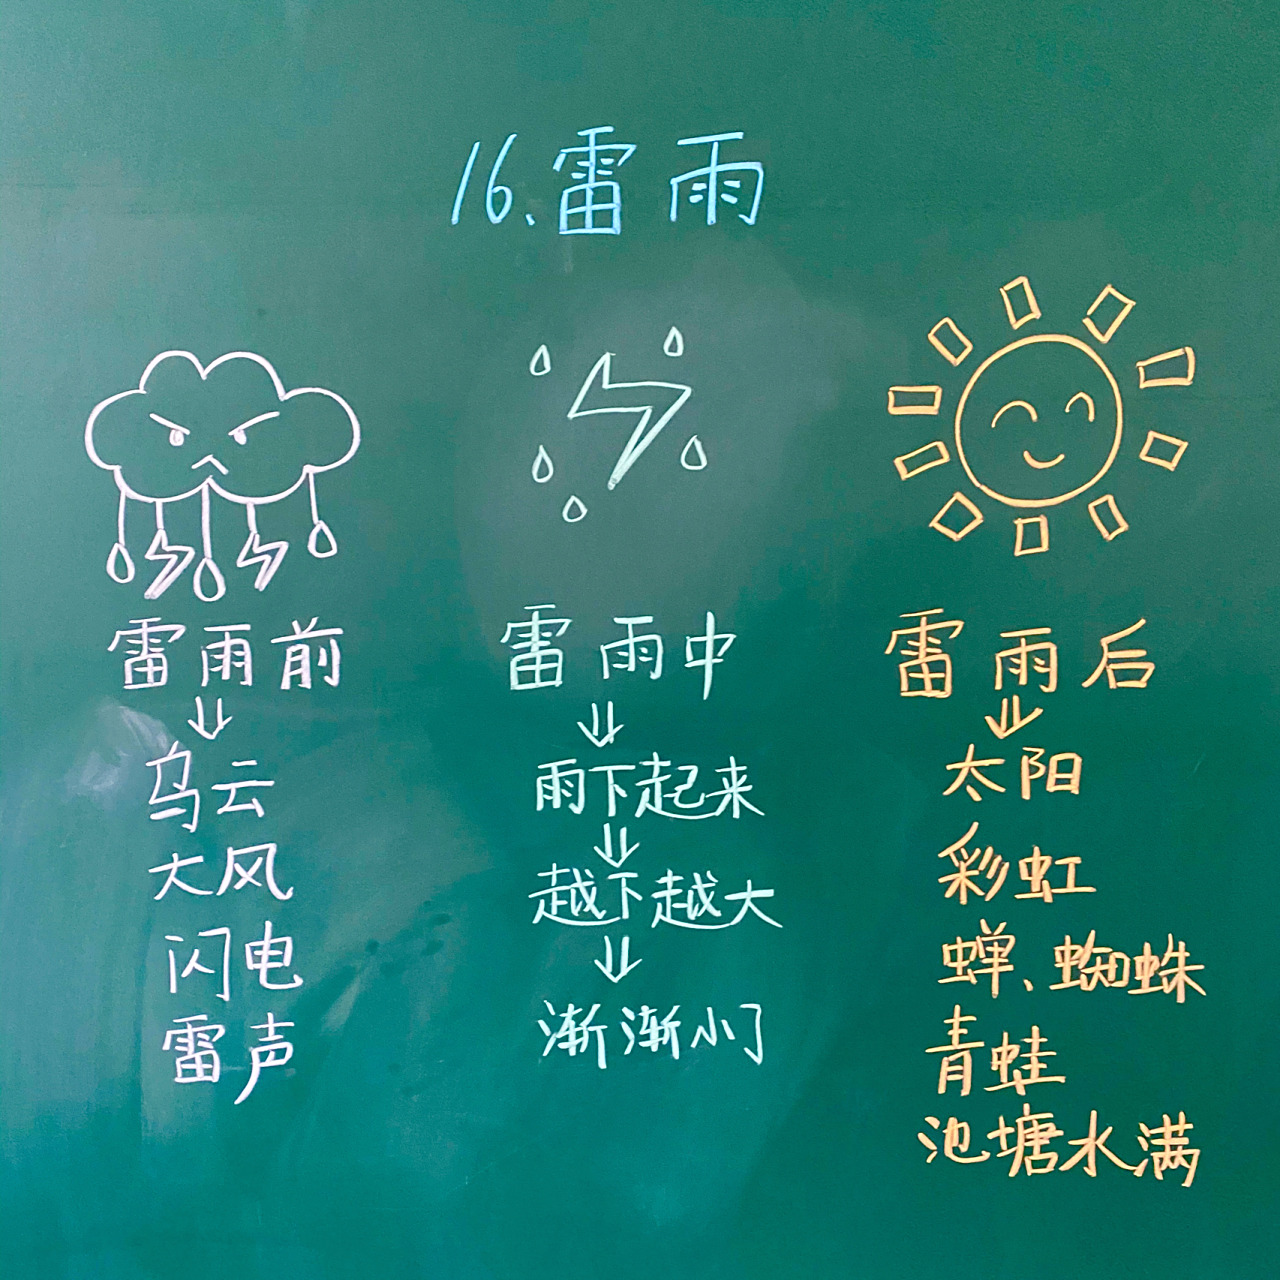 16、雷雨
雷雨前
乌云
大风
闪电
雷声
雷雨中
雨下起来
越下越大
渐渐小了
雷雨后
太阳
彩虹
蝉、蜘蛛
青蛙
池塘水满